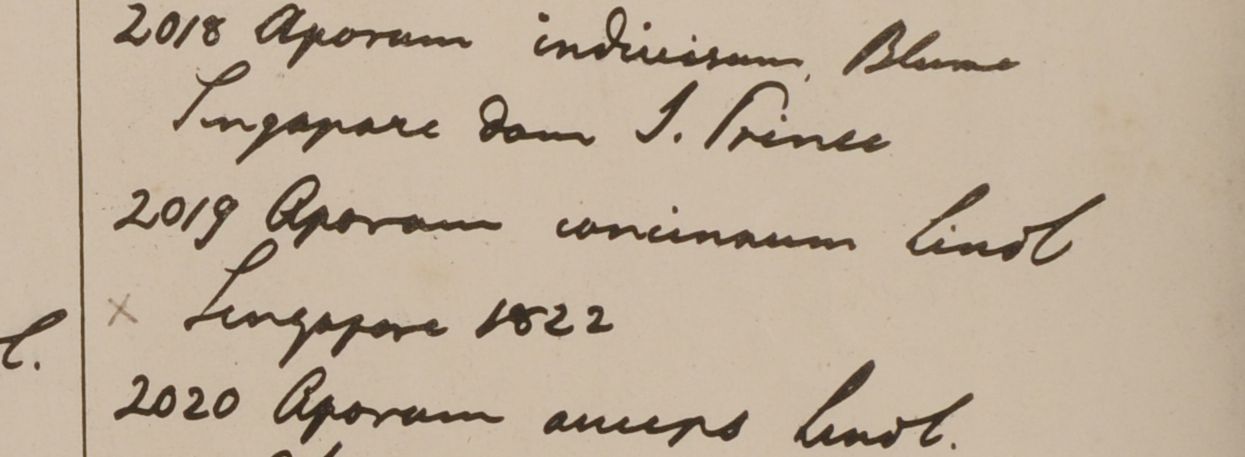 2018 Aporum indivisum, Blume
Singapore dom J. Prince
2019 Aporum concinnum Lindl
x Singapore 1822
l.
2020 Aporum anceps Lindl.